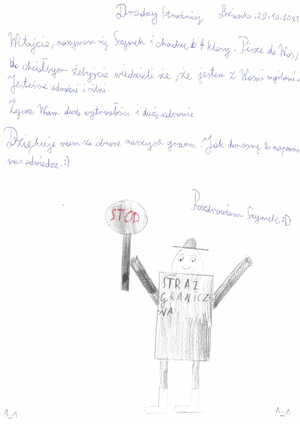 Drodzy Strażnicy 29.10.2021
Witajcie, nazywam się Szymek i chodzę do 4 klasy. Piszę do Was,
bo chciałbym żebyście wiedzieli że, że jestem z Wami myślami.
Jesteście odważni i silni.
Życzę Wam dużo wytrwałości i dużo zdrowia.
Dziękuję wam za obronę naszych granic. Jak dorosnę to
was odwiedzę. :)
Pozdrawiam Szymek :D
STOP
STRAŻ
GRANICZ
NA